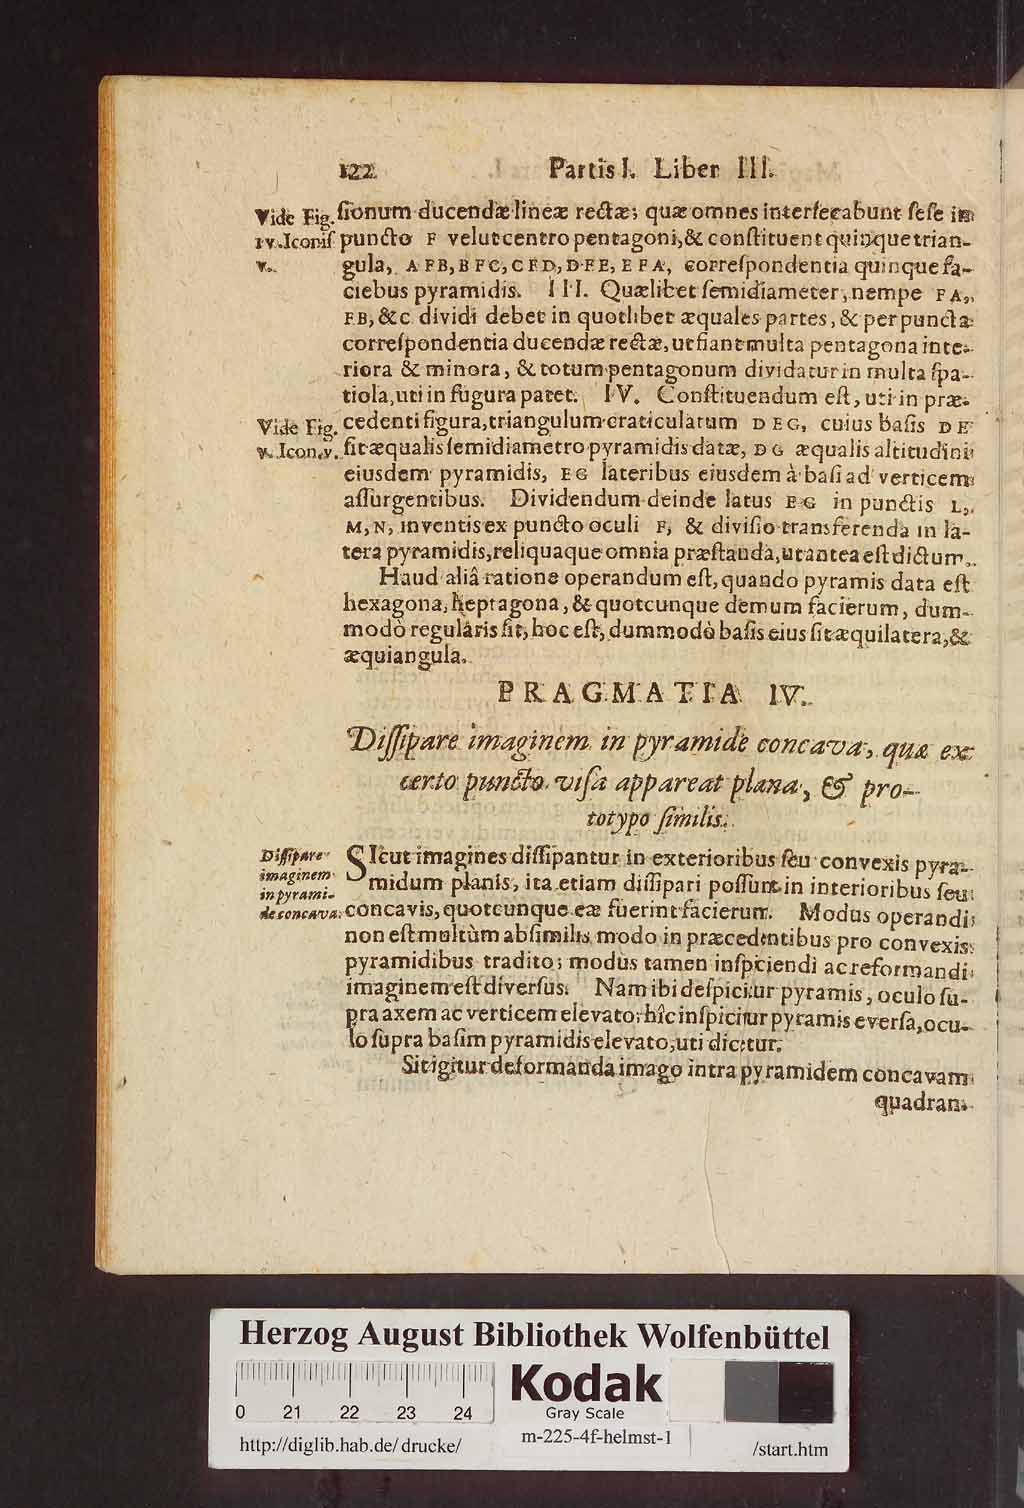 122 Partis I. Liber III.
Vide Fig.
IV. Iconiſ
V.
ſionum ducendæ lineæ rectæ; quæ omnes interſecabunt ſeſe in
puncto F velut centro pentagoni, & conſtituent quinque trian-
gula, AFB, BFC, CFD, DFE, EFA, correſpondentia quinque fa-
ciebus pyramidis. III. Quælibet ſemidiameter, nempe FA,
FB, &c. dividi debet in quotlibet æquales partes, & per puncta
correſpondentia ducendæ rectæ, ut fiant multa pentagona inte-
riora & minora, & totum pentagonum dividatur in multa ſpa-
tiola, uti in fugura patet. IV. Conſtituendum eſt, uti in præ-
Vide Fig.
V. Icon. V.
cedenti figura, triangulum craticulatum DEG, cuius baſis DE
ſit æqualis ſemidiametro pyramidis datæ, DG æqualis altitudini
eiusdem pyramidis, EG lateribus eiusdem à baſi ad verticem
aſſurgentibus. Dividendum deinde latus EG in punctis L,
M, N, inventis ex puncto oculi F, & diviſio transferenda in la-
tera pyramidis, reliquaque omnia præſtanda, ut antea eſt dictum.
Haud aliâ ratione operandum eſt, quando pyramis data eſt
hexagona, heptagona, & quotcunque demum facierum, dum-
modò regularis ſit, hoc eſt, dummodò baſis eius ſit æquilatera, &
æquiangula.
PRAGMATIA IV.
Diſſipare imaginem in pyramide concava, quæ ex
certo puncto viſa appareat plana, & pro-
totypo ſimilis.
Diſſipare
imaginem
in pyrami-
de concava.
SIcut imagines diſſipantur in exterioribus ſeu convexis pyra-
midum planis, ita etiam diſſipari poſſunt in interioribus ſeu
concavis, quotcunque eæ fuerint facierum. Modus operandi
non eſt multùm abſimilis modo in præcedentibus pro convexis
pyramidibus tradito; modus tamen inſpiciendi ac reformandi
imaginem eſt diverſus. Nam ibi deſpicitur pyramis, oculo ſu-
pra axem ac verticem elevato; hîc inſpicitur pyramis everſa, ocu-
lo ſupra baſim pyramidis elevato, uti dicetur.
Sit igitur deformanda imago intra pyramidem concavam
quadran-
Herzog August Bibliothek Wolfenbüttel
0 21 22 23 24
Kodak
Gray Scale
http://diglib.hab.de/drucke/ m-225-4f-helmst-1 /start.htm